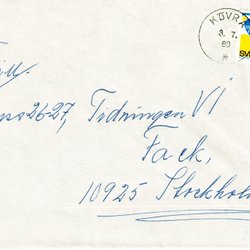 KÖVR
3. 7.
80
SV
ss 26-27, Tidningen VI
Fack,
10925 Stockhol